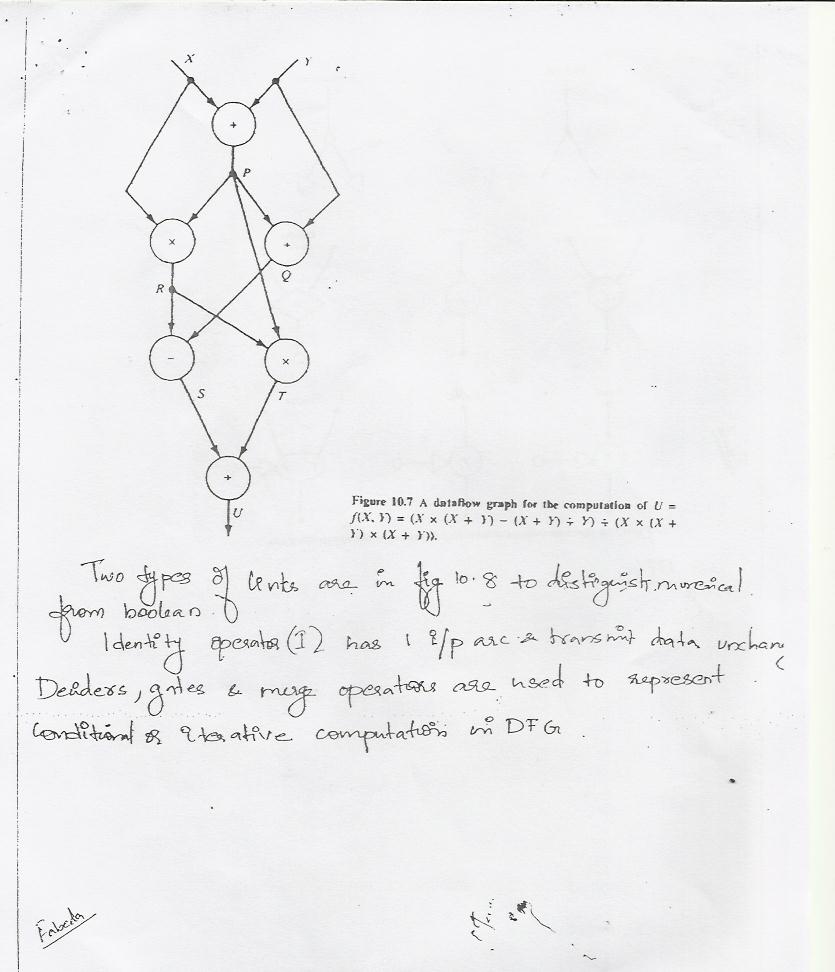 X Y
+
P
× +
Q
R
- ×
S T
+
U
Figure 10.7 A dataflow graph for the computation of U =
f(X, Y) = (X × (X + Y) − (X + Y) ÷ Y) ÷ (X × (X +
Y) × (X + Y)).
Two types of links are in fig 10.8 to distinguish numerical
from boolean.
Identity operator (I) has 1 i/p arc & transmit data unchan
Deciders, gates & merge operators are used to represent
Conditional or iterative computation in DFG.